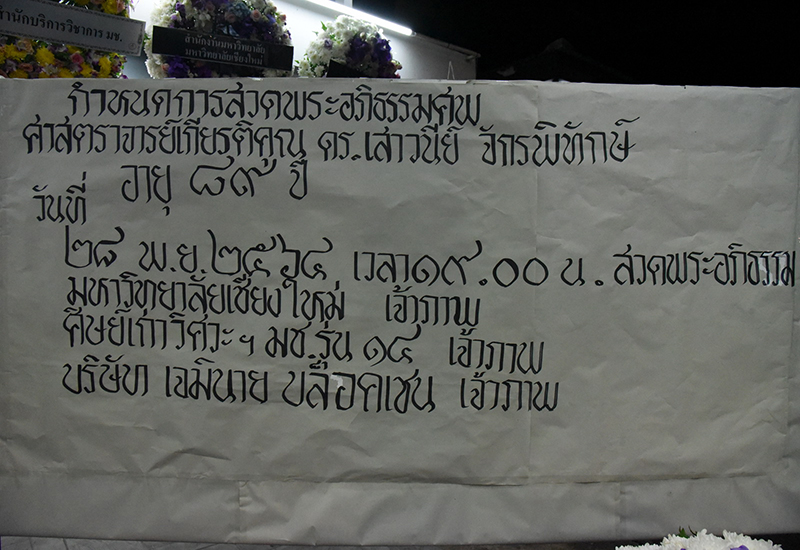 สำนักบริการวิชาการ มช.
สำนักงานมหาวิทยาลัย
มหาวิทยาลัยเชียงใหม่
กำหนดการสวดพระอภิธรรมศพ
ศาสตราจารย์เกียรติคุณ ดร.เสาวนีย์ จักรพิทักษ์
อายุ ๘๙ ปี
วันที่
๒๘ พ.ย.๒๕๖๔ เวลา๑๙.๐๐ น. สวดพระอภิธรรม
มหาวิทยาลัยเชียงใหม่ เจ้าภาพ
ศิษย์เก่าวิศวะฯ มช.รุ่น ๑๔ เจ้าภาพ
บริษัท เจมินาย บล็อคเชน เจ้าภาพ